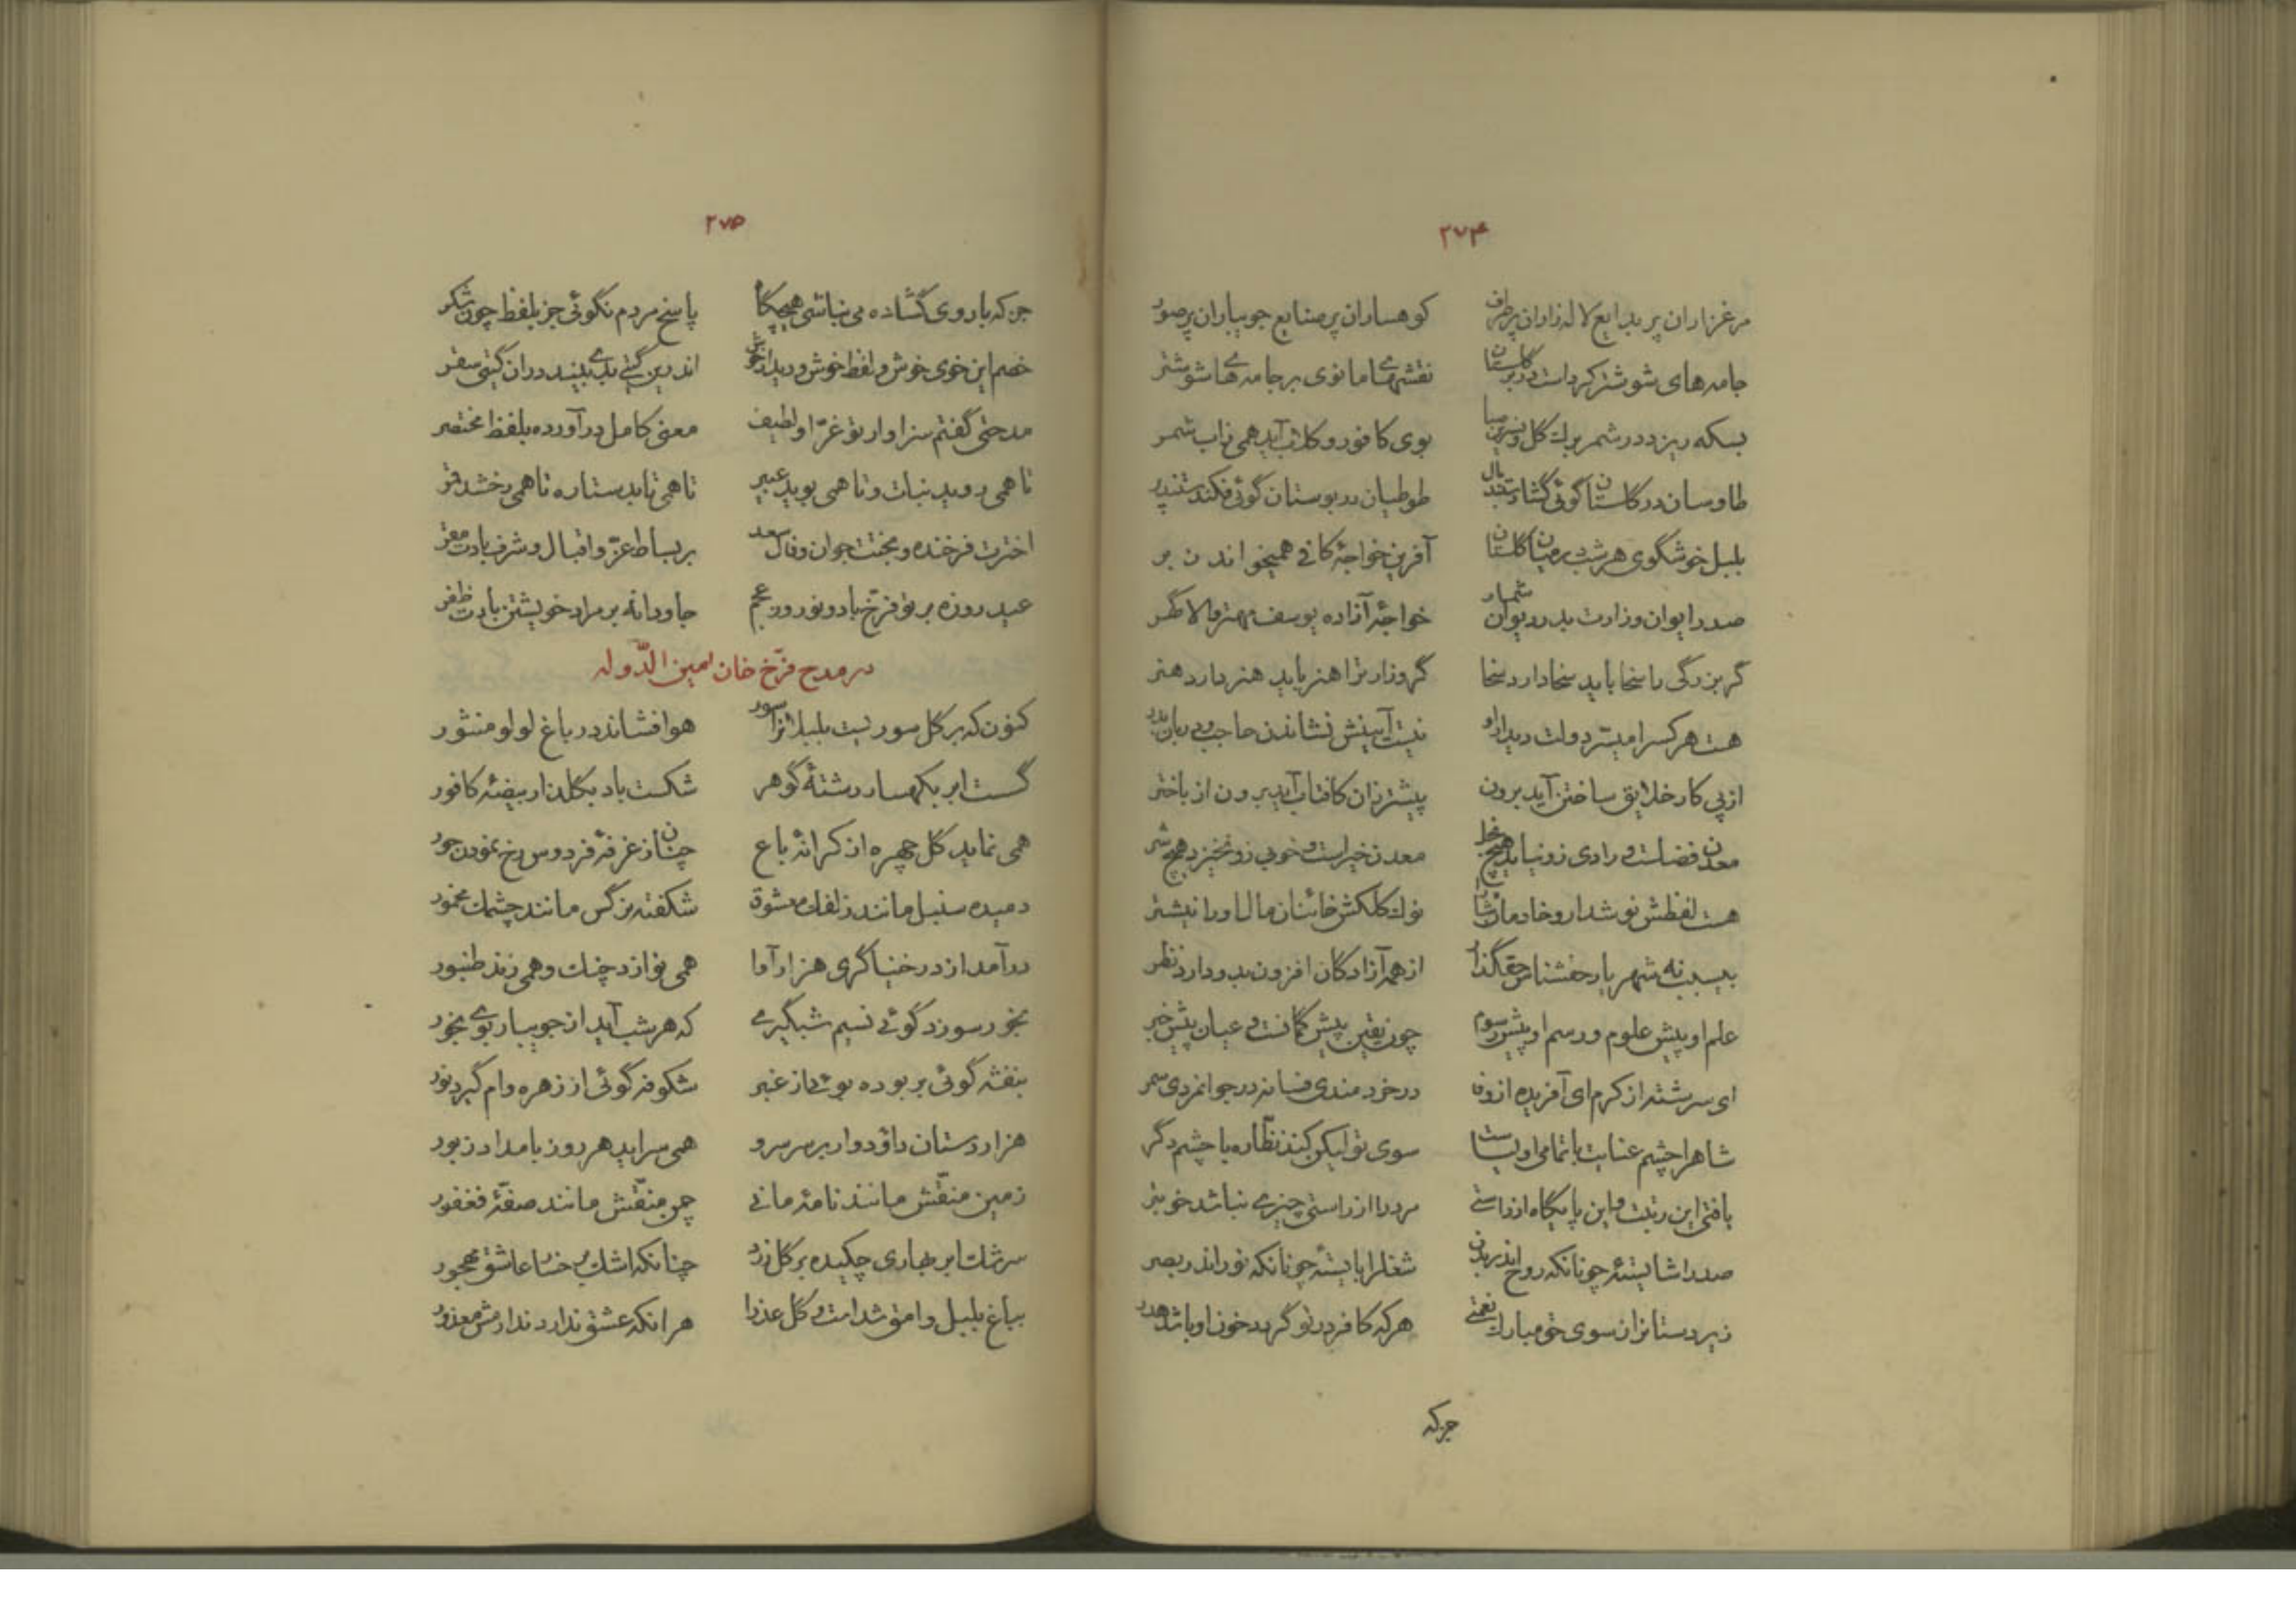 ۲۷۴
مرغزاران پر بدایع لاله زاران پر طرف کوهساران پر صنایع جویباران پر صور
جامه‌های شوشتر کرد است در بر گلستان نقشهای مانوی بر جامه‌های شوشتر
بسکه ریزد در شمر برك گل و نسرین صبا بوی کافور و گلاب آید همی ز آب شمر
طاوسان در گلستان گوئی گشادستند بال طوطیان در بوستان گوئی فکندستند پر
بلبل خوشگوی هر شب در میان گلستان آفرین خواجهٔ کافی همیخواند ز بر
صدر ایوان وزارت بدر دیوان شمار خواجهٔ آزاده یوسف مهتر والا گهر
گر بزرگی را سخا باید سخا دارد سخا گر وزارترا هنر باید هنر دارد هنر
هست هر کسرا میسّر دولت دیدار او نیست آیینش نشاندن حاجب و دربان بدر
از پی کار خلایق ساختن آید برون پیشتر زان کافتاب آید برون از باختر
معدن فضلست و رادی زو نیاید هیچ خطا معدن خیراست و خوبی زو نخیزد هیچ شر
هست لفظش نوشدارو خادمان شاهرا نوك کلکش خائنان مال اورا نیشتر
بی‌سبب نه شهریار حقشناس حقگذار از همه آزادگان افزون بدو دارد نظر
علم او پیش علوم و رسم او پیش رسوم چون یقین پیش گمانست و عیان پیش خبر
ای سرشته از کرم ای آفریده از وفا در خردمندی فسانه در جوانمردی سمر
شاهرا چشم عنایت با تمامی اولیاست سوی تو لیکن کند نظّاره با چشم دگر
یافتی این رتبت و این پایگاه از راستی مرد را از راستی چیزی نباشد خوبتر
صدر را شایستهٔ چونانکه روح اندر بدن شغل را بایستهٔ چونانکه نور اندر بصر
زیردستانرا ز سوی حق مبارك نعمتی هر که کافر در تو گردد خون او باشد هدر
جز که
۲۷۵
جز که با روی گشاده می نباشی هیچگاه پاسخ مردم نگوئی جز بلفظ چون شکر
خصم این خوی خوش و لفظ خوش و دیدار خوش اندرین گیتی بدی بیند در آن گیتی سقر
مدحتی گفتم سزاوار تو غرّا و لطیف معنی کامل در آورده بلفظ مختصر
تا همی روید نبات و تا همی بوید عبیر تا همی تابد ستاره تا همی رخشد قمر
اخترت فرخنده و بختت جوان و فال سعد بر بساط عزّ و اقبال و شرف بادت مقر
عید روزه بر تو فرّخ باد و نوروز عجم جاودانه بر مراد خویشتن بادت ظفر
در مدح فرّخ خان امین الدّوله
کنون که بر گل سوریست بلبلانرا سور هوا فشاند در باغ لولو منثور
گسست ابر بکهسار رشتهٔ گوهر شکست باد بگلزار بیضهٔ کافور
همی نماید گل چهره از کرانهٔ باغ چنان ز غرفهٔ فردوس رخ نمودن حور
دمیده سنبل مانند زلفك معشوق شکفته نرگس مانند چشمك مخمور
درآمد از در خنیاگری هزار آوا همی نوازد چنك و همی زند طنبور
بخور سوزد گوئی نسیم شبگیری که هر شب آید از جویبار بوی بخور
بنفشه گوئی بربوده بوئی از عنبر شکوفه گوئی از زهره وام گیرد نور
هزاردستان داودوار بر سر سرو همی سراید هر روز بامداد زبور
زمین منقّش مانند نامهٔ مانی چمن منقّش مانند صفّهٔ فغفور
سرشك ابر بهاری چکیده بر گل زرد چنانکه اشك بر رخسار عاشق مهجور
بباغ بلبل وامق شداست و گل عذرا هرانکه عشق ندارد ندارمش معذور